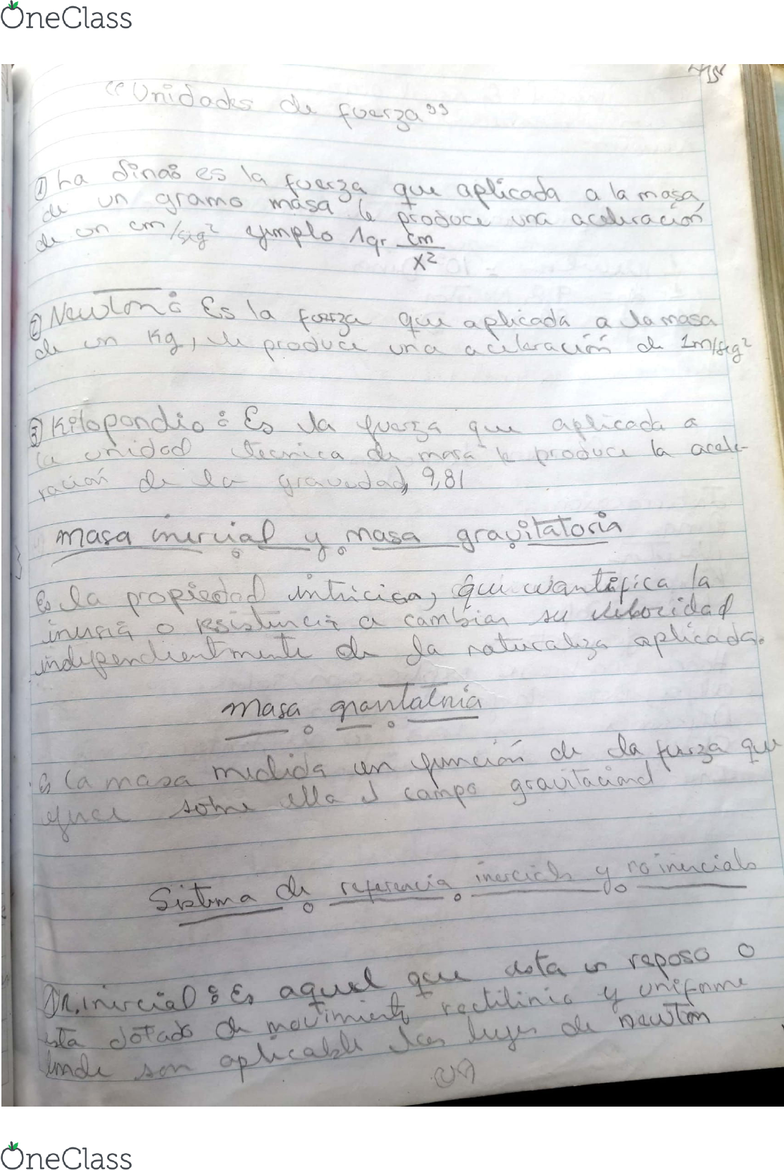 OneClass
"Unidades de fuerza"
① La dina: es la fuerza que aplicada a la masa
de un gramo masa le produce una aceleración
de un cm/seg² ejmplo 1gr cm
x²
② Newton: Es la fuerza que aplicada a la masa
de un Kg, le produce una aceleración de 1m/seg²
③ Kilopondio: Es la fuerza que aplicada a
la unidad tecnica de masa le produce la acele-
ración de la gravedad, 9,81
masa inercial y masa gravitatoria
Es la propiedad intricica, que cuantifica la
inercia o resistencia a cambiar su velocidad
independientmente de la naturaleza aplicada.
masa
Es la masa medida en función de la fuerza que
ejerce sobre ella el campo gravitacional
Sistema de referencia inerciales y no inerciales
inercial: Es aquel que esta en reposo o
esta dotado de movimiento rectilinio y uniforme
donde son aplicable las leyes de newton
OneClass